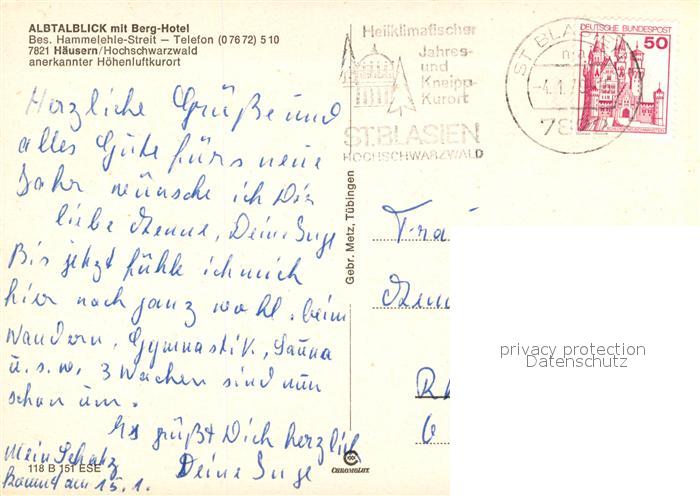 ALBTALBLICK mit Berg-Hotel
Bes. Hammelehle-Streit – Telefon (0 76 72) 5 10
7821 Häusern/Hochschwarzwald
anerkannter Höhenluftkurort
Heilklimatischer
Jahres-
und
Kneipp-
Kurort
ST. BLASIEN
HOCHSCHWARZWALD
ST BLASIEN
7822
DEUTSCHE BUNDESPOST
50
Herzliche Grüße und
alles Gute fürs neue
Jahr wünsche ich Dir
liebe Deine Inge
Bis jetzt fühle ich mich
hier noch ganz wohl, beim
Wandern, Gymnastik, Sauna
u.s.w. 3 Wochen sind nun
schon um.
Es grüßt Dich herzlich
Deine Inge
Mein Schatz
kommt am 15.1.
118 B 151 ESE
Gebr. Metz, Tübingen
CHROMOLUX
privacy protection
Datenschutz